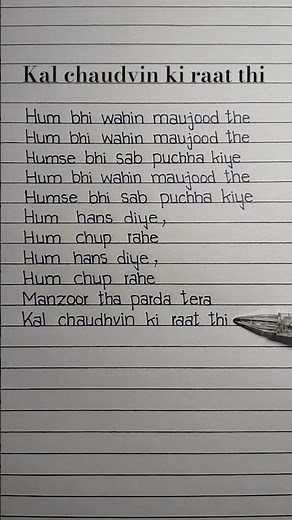 Kal chaudvin ki raat thi
Hum bhi wahin maujood the
Hum bhi wahin maujood the
Humse bhi sab puchha kiye
Hum bhi wahin maujood the
Humse bhi sab puchha kiye
Hum hans diye,
Hum chup rahe
Hum hans diye,
Hum chup rahe
Manzoor tha parda tera
Kal chaudhvin ki raat thi